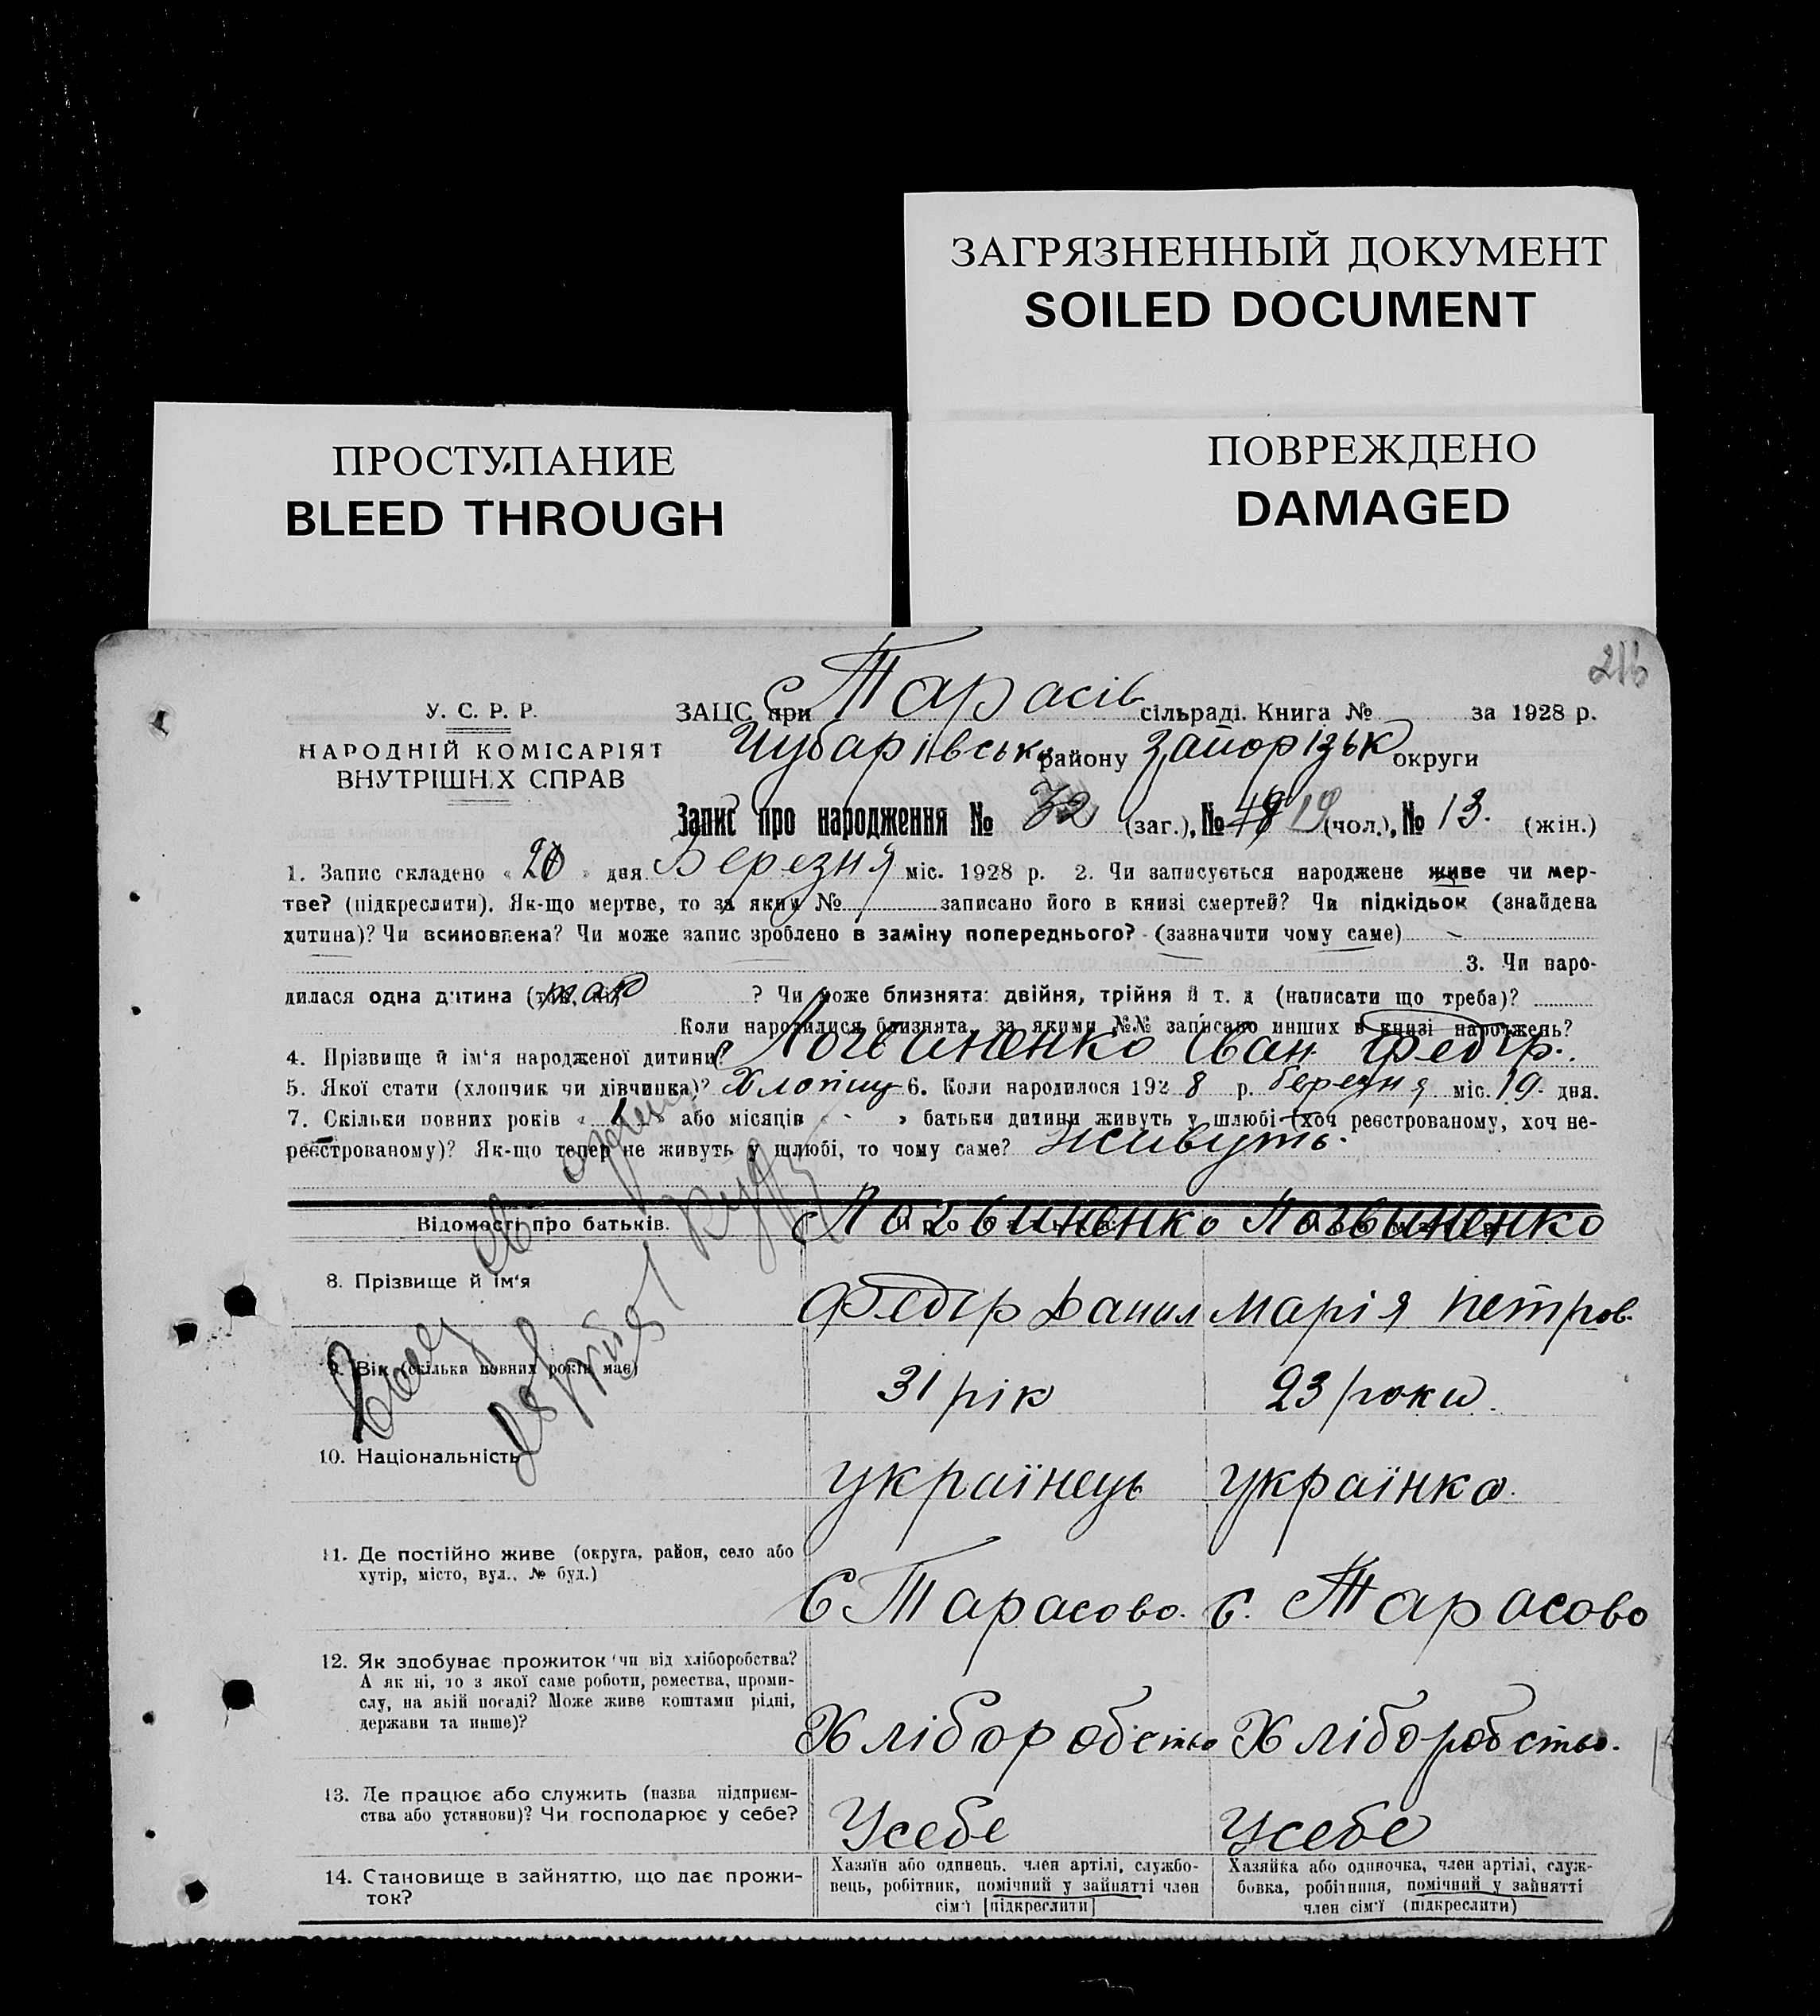 ЗАГРЯЗНЕННЫЙ ДОКУМЕНТ
SOILED DOCUMENT
ПРОСТУПАНИЕ
BLEED THROUGH
ПОВРЕЖДЕНО
DAMAGED
216
У. С. Р. Р.
НАРОДНІЙ КОМІСАРІЯТ
ВНУТРІШНІХ СПРАВ
ЗАЦС при с Тарасів сільраді. Книга № за 1928 р.
Чубарівськ району Запорізьк округи
Запис про народження № 32 (заг.), № 19 (чол.), № 13. (жін.)
1. Запис складено « 20 » дня Березня міс. 1928 р. 2. Чи записується народжене живе чи мер-
тве? (підкреслити). Як-що мертве, то за яким № записано його в книзі смертей? Чи підкідьок (знайдена
дитина)? Чи всиновлена? Чи може запис зроблено в заміну попереднього? (зазначити чому саме)
3. Чи наро-
дилася одна дитина (так, ні) так ? Чи може близнята: двійня, трійня й т. д (написати що треба)?
Коли народилися близнята, за якими №№ записано инших в книзі народжень?
4. Прізвище й ім'я народженої дитини? Логвиненко Іван Федір.
5. Якої стати (хлопчик чи дівчинка)? Хлопчик 6. Коли народилося 1928 р. березня міс. 19. дня.
7. Скільки повних років « 1 » або місяців « - » батьки дитини живуть у шлюбі (хоч реєстрованому, хоч не-
реєстрованому)? Як-що тепер не живуть у шлюбі, то чому саме? живуть.
Відомості про батьків. Логвиненко Логвиненко
8. Прізвище й ім'я Федір Данил Марія Петров.
9. Вік (скільки повних років має) 31 рік 23 роки.
10. Національність українець українка.
11. Де постійно живе (округа, район, село або
хутір, місто, вул., № буд.)
С Тарасово. с. Тарасово
12. Як здобуває прожиток чи від хліборобства?
А як ні, то з якої саме роботи, ремества, проми-
слу, на якій посаді? Може живе коштами рідні,
держави та инше)?
Хліборобство Хліборобство.
13. Де працює або служить (назва підприєм-
ства або установи)? Чи господарює у себе?
Усебе Усебе
14. Становище в зайняттю, що дає прожи-
ток?
Хазяїн або одинець, член артілі, службо-
вець, робітник, помічний у зайнятті член
сім'ї [підкреслити]
Хазяйка або одиночка, член артілі, служ-
бовка, робітниця, помічний у зайнятті
член сім'ї (підкреслити)